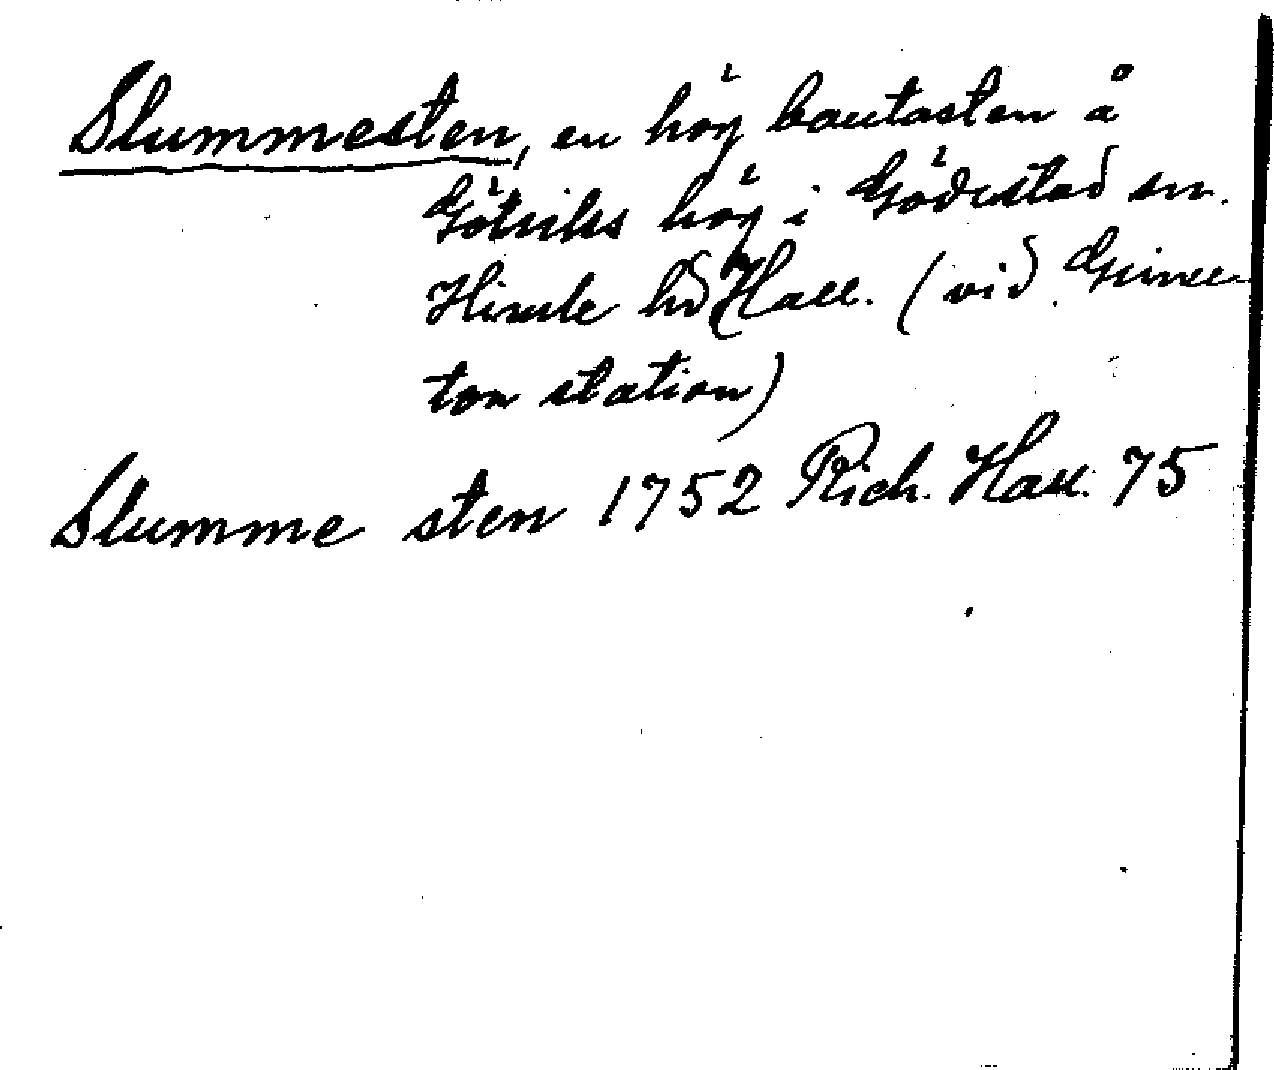 Slummesten, en hög bautasten å
Götriks hög i Gödestad sn.
Himle hd Hall. (vid Grime-
ton station)
Slumme sten 1752 Rich. Hall. 75